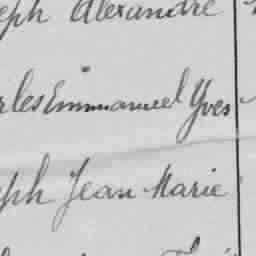 eph Alexandre
rles Emmanuel Yves
eph Jean Marie